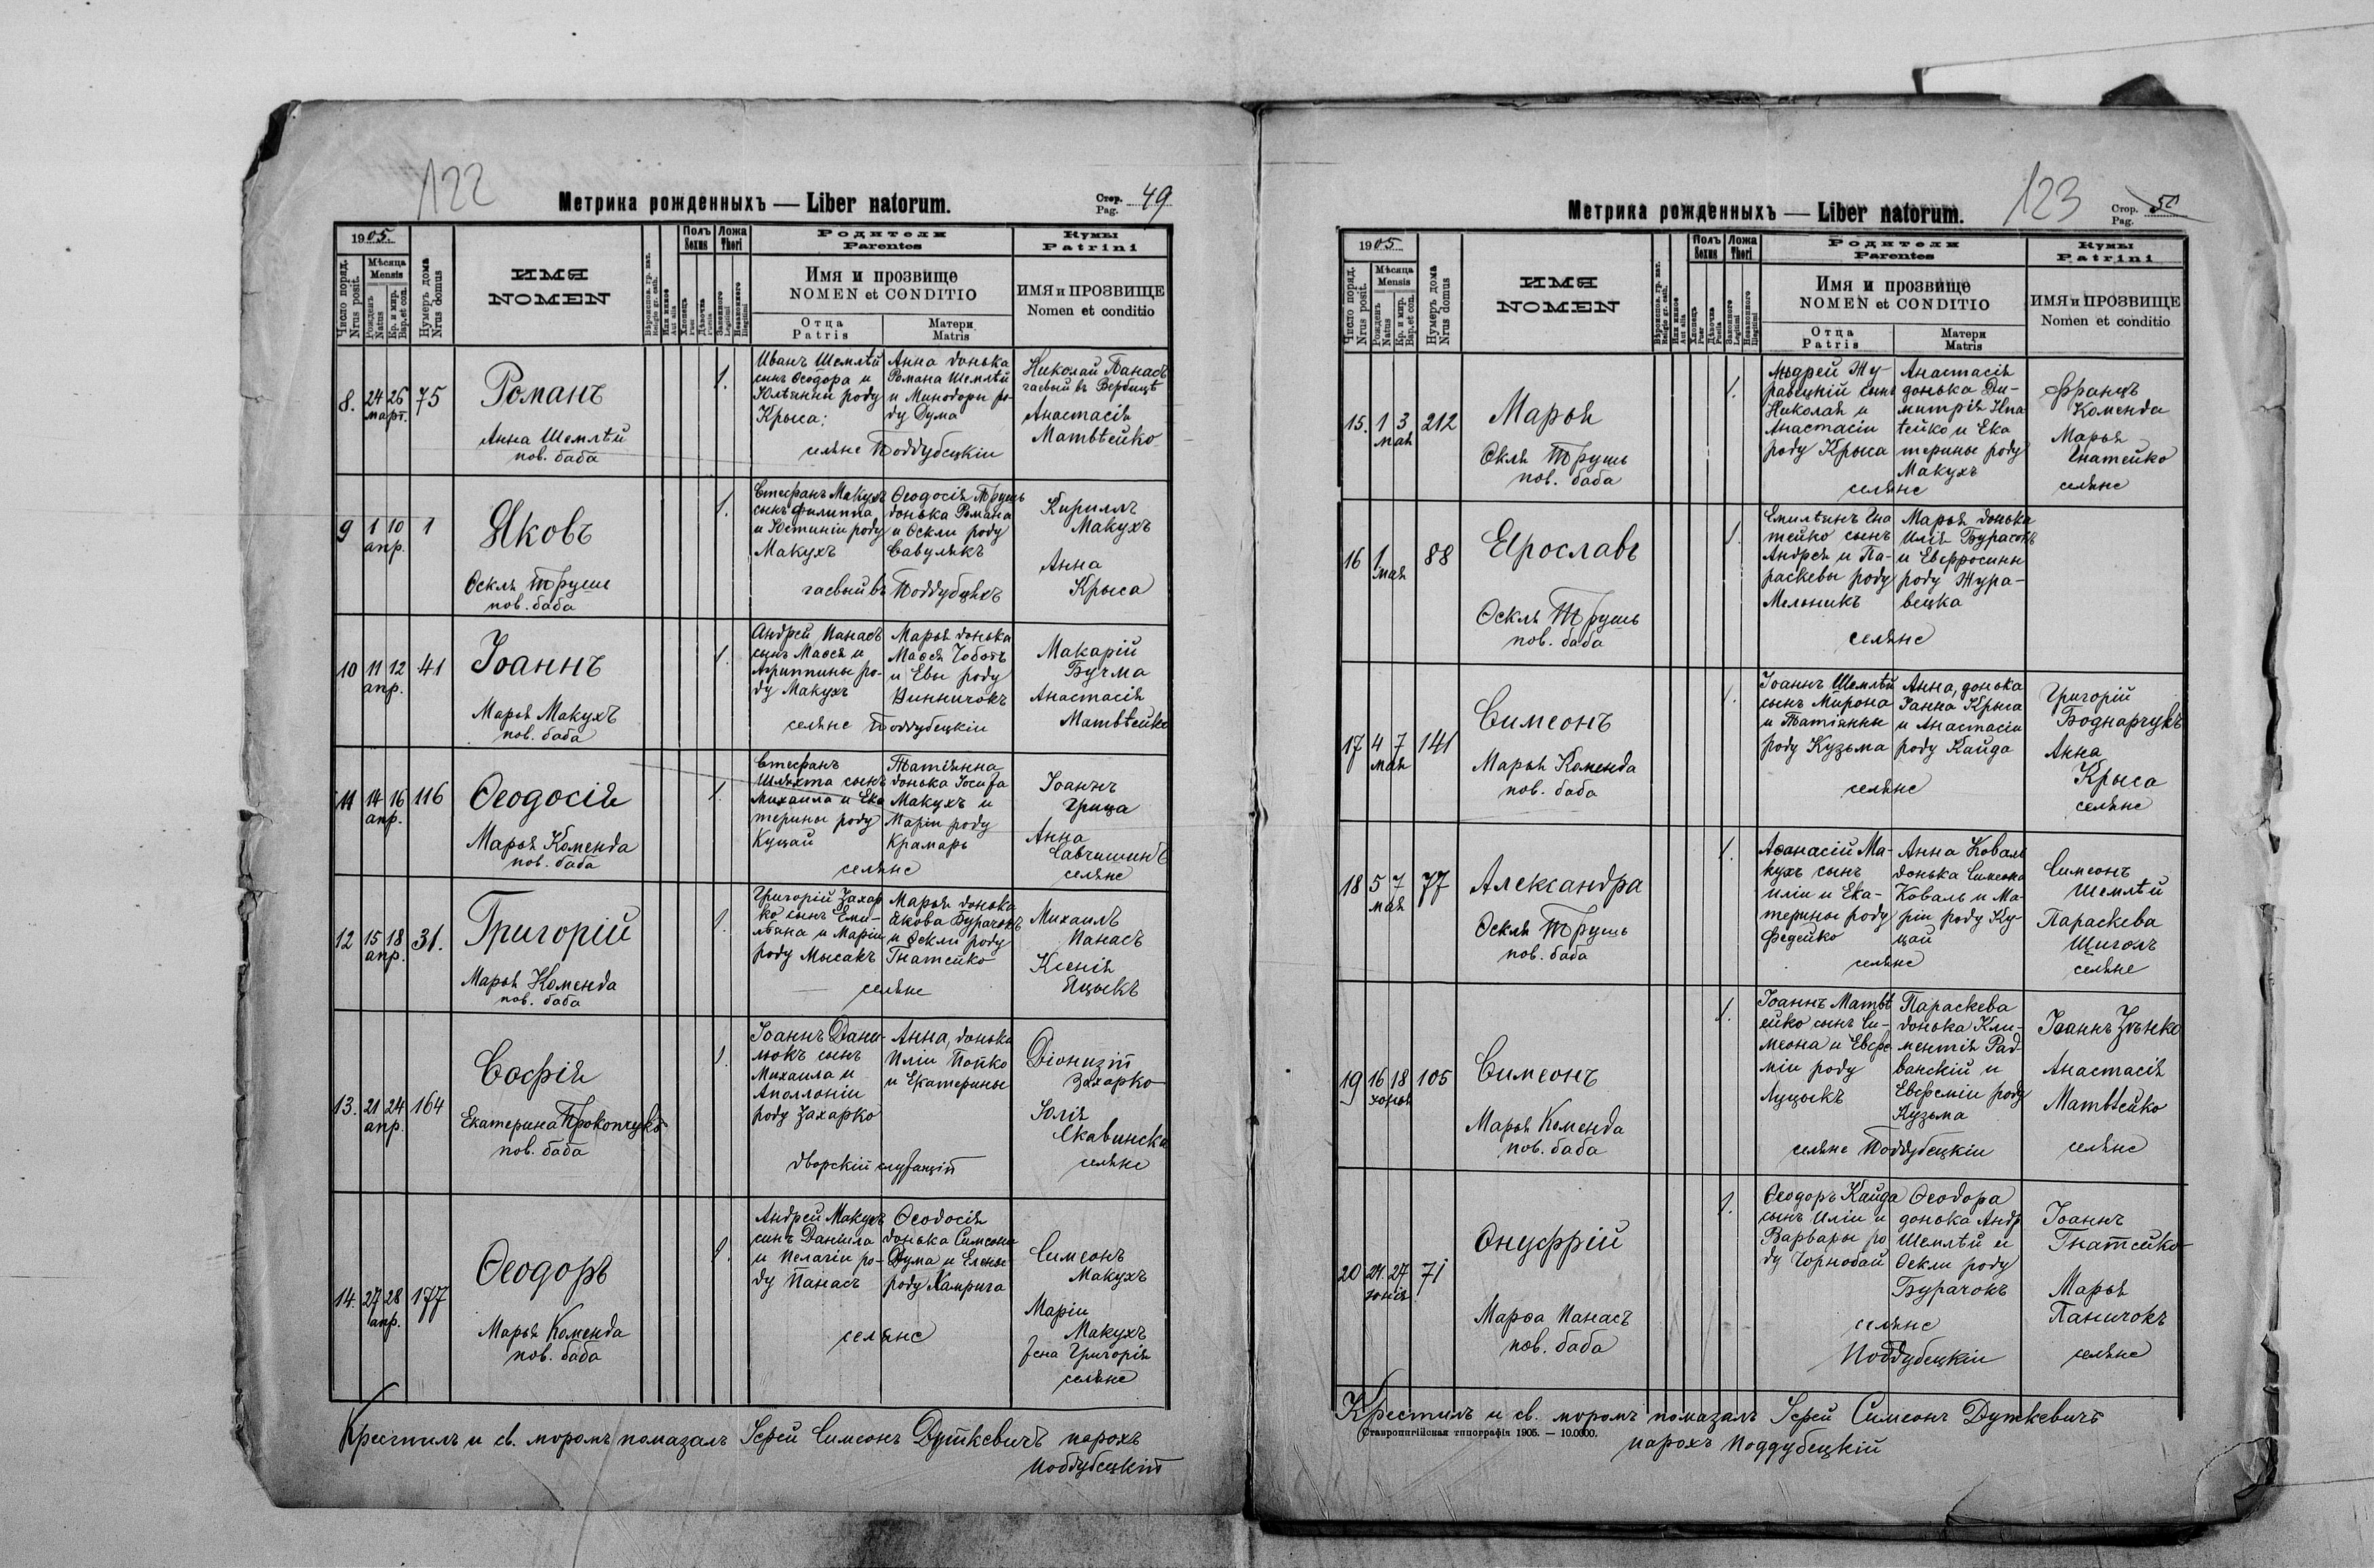 122
Метрика рожденныхъ — Liber natorum.
Стор. Pag. 49
1905.
Число поряд. Nrus posit.
Мѣсяца Mensis
Рожденъ Natus
Кр. и мѵр. Bap. et con.
Нумеръ дома Nrus domus
ИМЯ
NOMEN
Полъ Sexus
Ложа Thori
Родители
Parentes
Имя и прозвище
NOMEN et CONDITIO
Отца Patris
Матери Matris
Кумы
Patrini
ИМЯ и ПРОЗВИЩЕ
Nomen et conditio
8. 24 26 март. 75
Романъ
Анна Шемлѣй
пов. баба
1.
Иванъ Шемлѣй
сынъ Ѳеодора и
Юліянны роду
Крыса:
Анна донька
Романа Шемлѣй
и Минодоры ро-
ду Дума
селяне Поддубецкіи
Николай Панасъ
гаевый въ Вербицѣ
Анастасія
Матвѣейко
9 1 10 апр. 1
Яковъ
Ѳекля Трушъ
пов. баба
1.
Стефанъ Макухъ
сынъ Филиппа
и Юстиніи роду
Макухъ
Ѳеодосія Трушъ
донька Романа
и Ѳекли роду
Савулякъ
гаевый въ Поддубцяхъ
Кириллъ
Макухъ
Анна
Крыса
10 11 12 апр. 41
Іоаннъ
Марья Макухъ
пов. баба
1.
Андрей Панасъ
сынъ Маѳея и
Агриппины ро-
ду Макухъ
Марья донька
Маѳея Чоботъ
и Евы роду
Винничокъ
селяне Поддубецкіи
Макарій
Бучма
Анастасія
Матвѣейко
11 14 16 апр. 116
Ѳеодосія
Марья Коменда
пов. баба
1.
Стефанъ
Шляхта сынъ
Михаила и Ека
терины роду
Куцай
Татіянна
донька Іосифа
Макухъ и
Маріи роду
Крамаръ
селяне
Іоаннъ
Грица
Анна
Савчишинъ
селяне
12 15 18 апр. 31.
Григорій
Марья Коменда
пов. баба
1.
Григорій Захар
ко сынъ Еми-
ліяна и Маріи
роду Мысакъ
Марья донька
Якова Бурачокъ
и Ѳекли роду
Гнатейко
селяне
Михаилъ
Панасъ
Ксенія
Яцыкъ
13. 21 24 апр. 164
Софія
Екатерина Прокопчукъ
пов. баба
1.
Іоаннъ Дани-
люкъ сынъ
Михаила и
Аполлоніи
роду Захарко
Анна, донька
Иліи Попко
и Екатерины
дворскій служащій
Діонизій
Захарко
Юлія
Скавинска
селяне
14. 27 28 апр. 177
Ѳеодоръ
Марья Коменда
пов. баба
1.
Андрей Макухъ
сынъ Даніила
и Пелагіи ро-
ду Панасъ
Ѳеодосія
донька Симеона
Дума и Елены
роду Хамрига
селяне
Симеонъ
Макухъ
Маріи
Макухъ
жена Григорія
селяне
Крестилъ и св. мѵромъ помазалъ Іерей Симеонъ Дуткевичъ парохъ
Поддубецкій
123
Метрика рожденныхъ — Liber natorum.
Стор. Pag. 50
1905
Число поряд. Nrus posit.
Мѣсяца Mensis
Рожденъ Natus
Кр. и мѵр. Bap. et con.
Нумеръ дома Nrus domus
ИМЯ
NOMEN
Полъ Sexus
Ложа Thori
Родители
Parentes
Имя и прозвище
NOMEN et CONDITIO
Отца Patris
Матери Matris
Кумы
Patrini
ИМЯ и ПРОЗВИЩЕ
Nomen et conditio
15. 1 3 мая 212
Марья
Ѳекля Трушъ
пов. баба
1.
Андрей Жу-
равецкій сынъ
Николая и
Анастасіи
роду Крыса
Анастасія
донька Ди-
митрія Гна
тейко и Ека
терины роду
Макухъ
селяне
Францъ
Коменда
Марья
Гнатейко
селяне
16 1 мая 88
Ярославъ
Ѳекля Трушъ
пов. баба
1.
Емиліянъ Гна
тейко сынъ
Андрея и Па-
раскевы роду
Мельникъ
Марья донька
Илія Бурачокъ
и Евфросины
роду Жура-
вецка
селяне
17 4 7 мая 141
Симеонъ
Марья Коменда
пов. баба
1.
Іоаннъ Шемлѣй
сынъ Мирона
и Татіянны
роду Кузьма
Анна, донька
Іоанна Крыса
и Анастасіи
роду Кайда
селяне
Григорій
Боднарчукъ
Анна
Крыса
селяне
18 5 7 мая 77
Александра
Ѳекля Трушъ
пов. баба
1.
Аѳанасій Ма-
кухъ сынъ
Иліи и Ека-
терины роду
Федейко
Анна Коваль
донька Симеона
Коваль и Ма-
ріи роду Ку-
цай
селяне
Симеонъ
Шемлѣй
Параскева
Щиголъ
селяне
19 16 18 юнія 105
Симеонъ
Марья Коменда
пов. баба
1.
Іоаннъ Матвѣ
ейко сынъ Си-
меона и Евфе
міи роду
Луцыкъ
Параскева
донька Кли-
ментія Рад-
ванскій и
Евфеміи роду
Кузьма
селяне Поддубецкіи
Іоаннъ Зѣнко
Анастасія
Матвѣейко
селяне
20 24. 27 юнія 71
Онуфрій
Марѳа Панасъ
пов. баба
1.
Ѳеодоръ Кайда
сынъ Иліи и
Варвары ро
ду Чорнобай
Ѳеодора
донька Андр
Шемлѣй и
Ѳекли роду
Бурачокъ
селяне
Поддубецкіи
Іоаннъ
Гнатейко
Марья
Паничокъ
селяне
Крестилъ и св. мѵромъ помазалъ Іерей Симеонъ Дуткевичъ
Ставропигійская типографія 1905. — 10.0000.
парохъ Поддубецкій